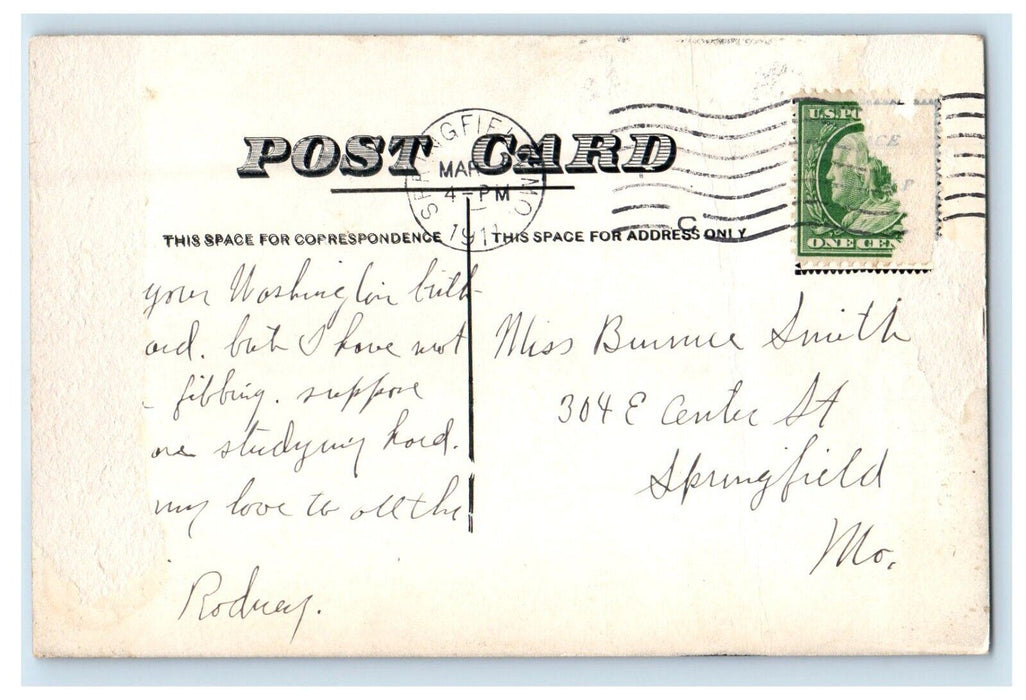 POST CARD
SPRINGFIELD MO
MAR
4-PM
1911
U.S.PO
CE
P
ONE CEN
THIS SPACE FOR CORRESPONDENCE
THIS SPACE FOR ADDRESS ONLY
your Washington birth
ard. but I have not
fibbing. suppose
are studying hard.
my love to all the
Rodney.
Miss Bunnie Smith
304 E Center St
Springfield
Mo.